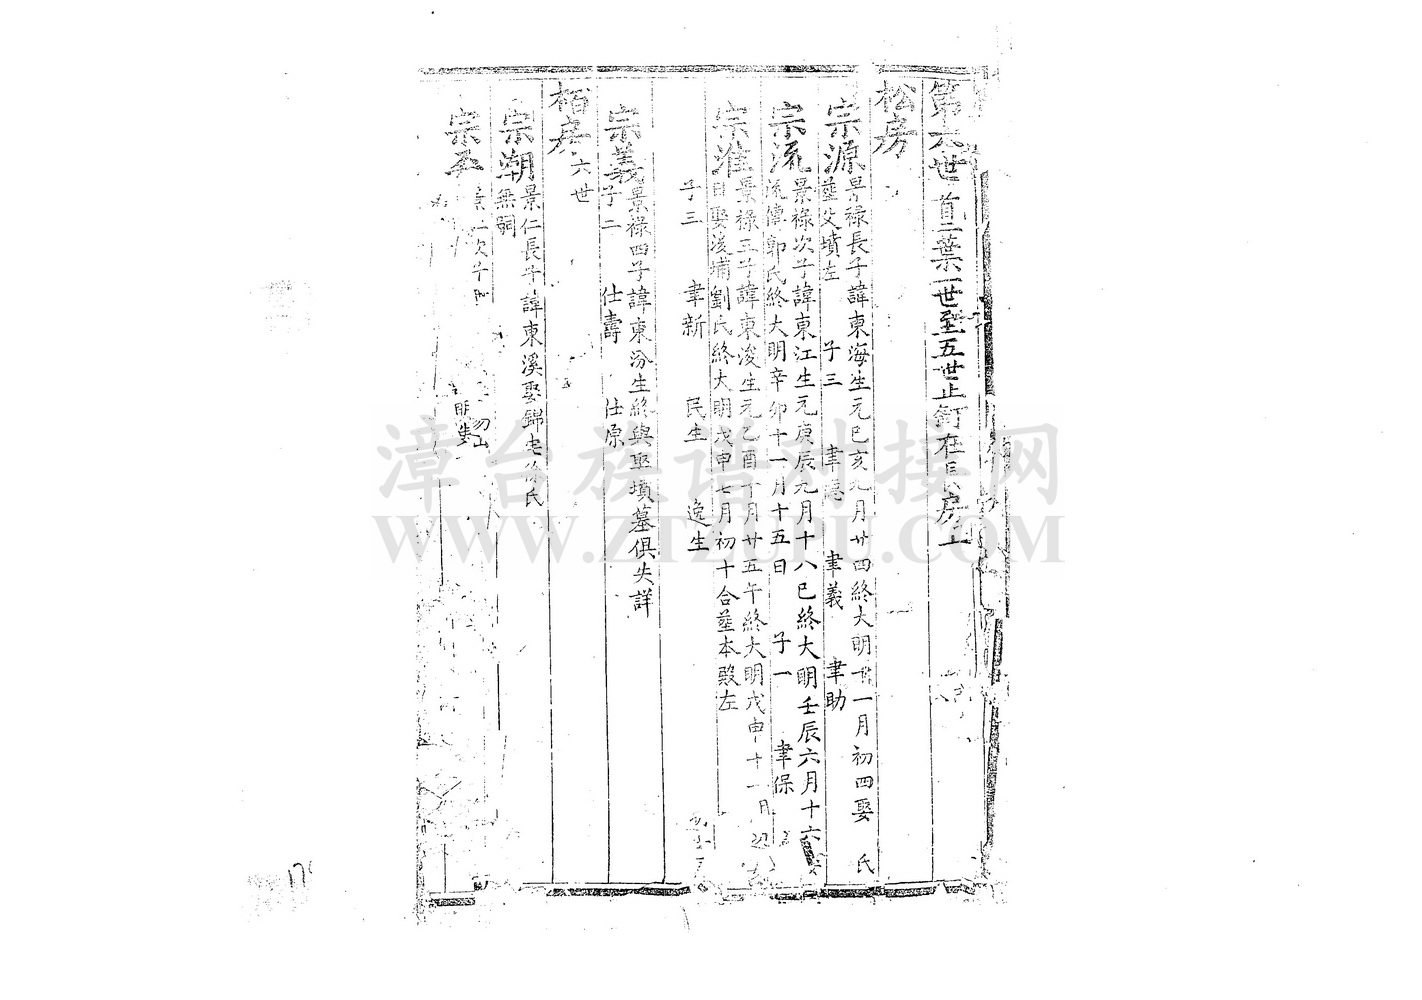 第六世 首二葉一世至五世止釘在長房上
松房
宗源 景祿長子諱東海生元己亥九月廿四終大明 十一月初四娶 氏
塟父墳左 子三 聿憲 聿義 聿助
宗流 景祿次子諱東江生元庚辰元月十八巳終大明壬辰六月十六
流傳郭氏終大明辛卯十一月十五日 子一 聿保
宗淮 景祿三子諱東浚生元乙酉十月廿五午終大明戊申十一月
日娶浚埔劉氏終大明戊申七月初十合塟本殿左
子三 聿新 民生 逸生
宗義 景祿四子諱東汾生終與娶墳墓俱失詳
子二 仕壽 仕原
栢房 六世
宗潮 景仁長子諱東溪娶錦宅徐氏
無嗣
宗 次子
漳台族谱对接网
WWW.ZTZUPU.COM